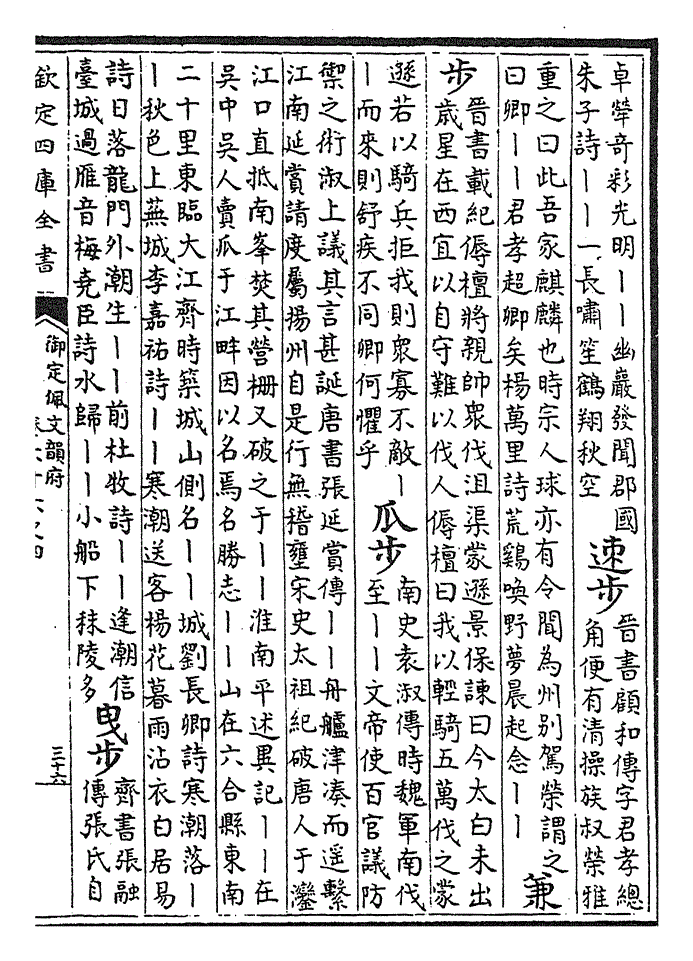 卓犖奇彩光明｜｜幽巖發聞郡國
朱子詩｜｜一長嘯笙鶴翔秋空
速步
晉書顧和傳字君孝總
角便有清操族叔榮雅
重之曰此吾家麒麟也時宗人球亦有令聞為州别駕榮謂之
曰卿｜｜君孝超卿矣楊萬里詩荒鷄喚野夢晨起念｜｜
兼
步
晉書載紀傉檀將親帥衆伐沮渠蒙遜景保諫曰今太白未出
歲星在西宜以自守難以伐人傉檀曰我以輕騎五萬伐之蒙
遜若以騎兵拒我則衆寡不敵｜
｜而來則舒疾不同卿何懼乎
瓜步
南史袁淑傳時魏軍南伐
至｜｜文帝使百官議防
禦之術淑上議其言甚誕唐書張延賞傳｜｜舟艫津湊而遥繫
江南延賞請度屬揚州自是行無稽壅宋史太祖紀破唐人于鑾
江口直抵南峯焚其營栅又破之于｜｜淮南平述異記｜｜在
吳中吳人賣瓜于江畔因以名焉名勝志｜｜山在六合縣東南
二十里東臨大江齊時築城山側名｜｜城劉長卿詩寒潮落｜
｜秋色上蕪城李嘉祐詩｜｜寒潮送客楊花暮雨沾衣白居易
詩日落龍門外潮生｜｜前杜牧詩｜｜逢潮信
臺城過雁音梅堯臣詩水歸｜｜小船下秣陵多
曳步
齊書張融
傳張氏自
欽定四庫全書
御定佩文韻府
卷六十六之四
三十六